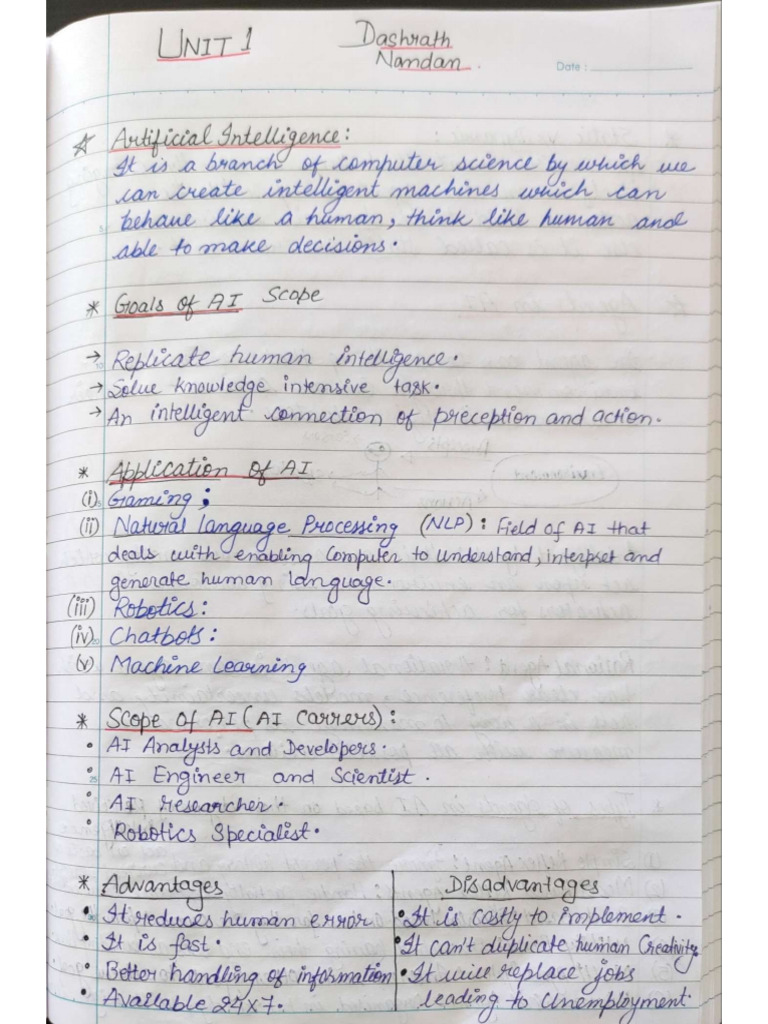 UNIT 1
Dashrath
Nandan.
Date :
Artificial Intelligence:
It is a branch of computer science by which we
can create intelligent machines which can
behave like a human, think like human and
able to make decisions.
* Goals of AI Scope
→ Replicate human intelligence.
→ Solve knowledge intensive task.
→ An intelligent connection of preception and action.
* Application of AI
(i) Gaming;
(ii) Natural language Processing (NLP): Field of AI that
deals with enabling computer to understand, interpset and
generate human language.
(iii) Robotics:
(iv) Chatbots:
(v) Machine Learning
* Scope of AI (AI Carrers):
• AI Analysts and Developers.
• AI Engineer and Scientist.
• AI researcher.
• Robotics Specialist.
* Advantages
• It reduces human error
• It is fast.
• Better handling of information
• Available 24x7.
Disadvantages
• It is costly to implement.
• It can't duplicate human Creativity
• It will replace job's
leading to Unemployment.